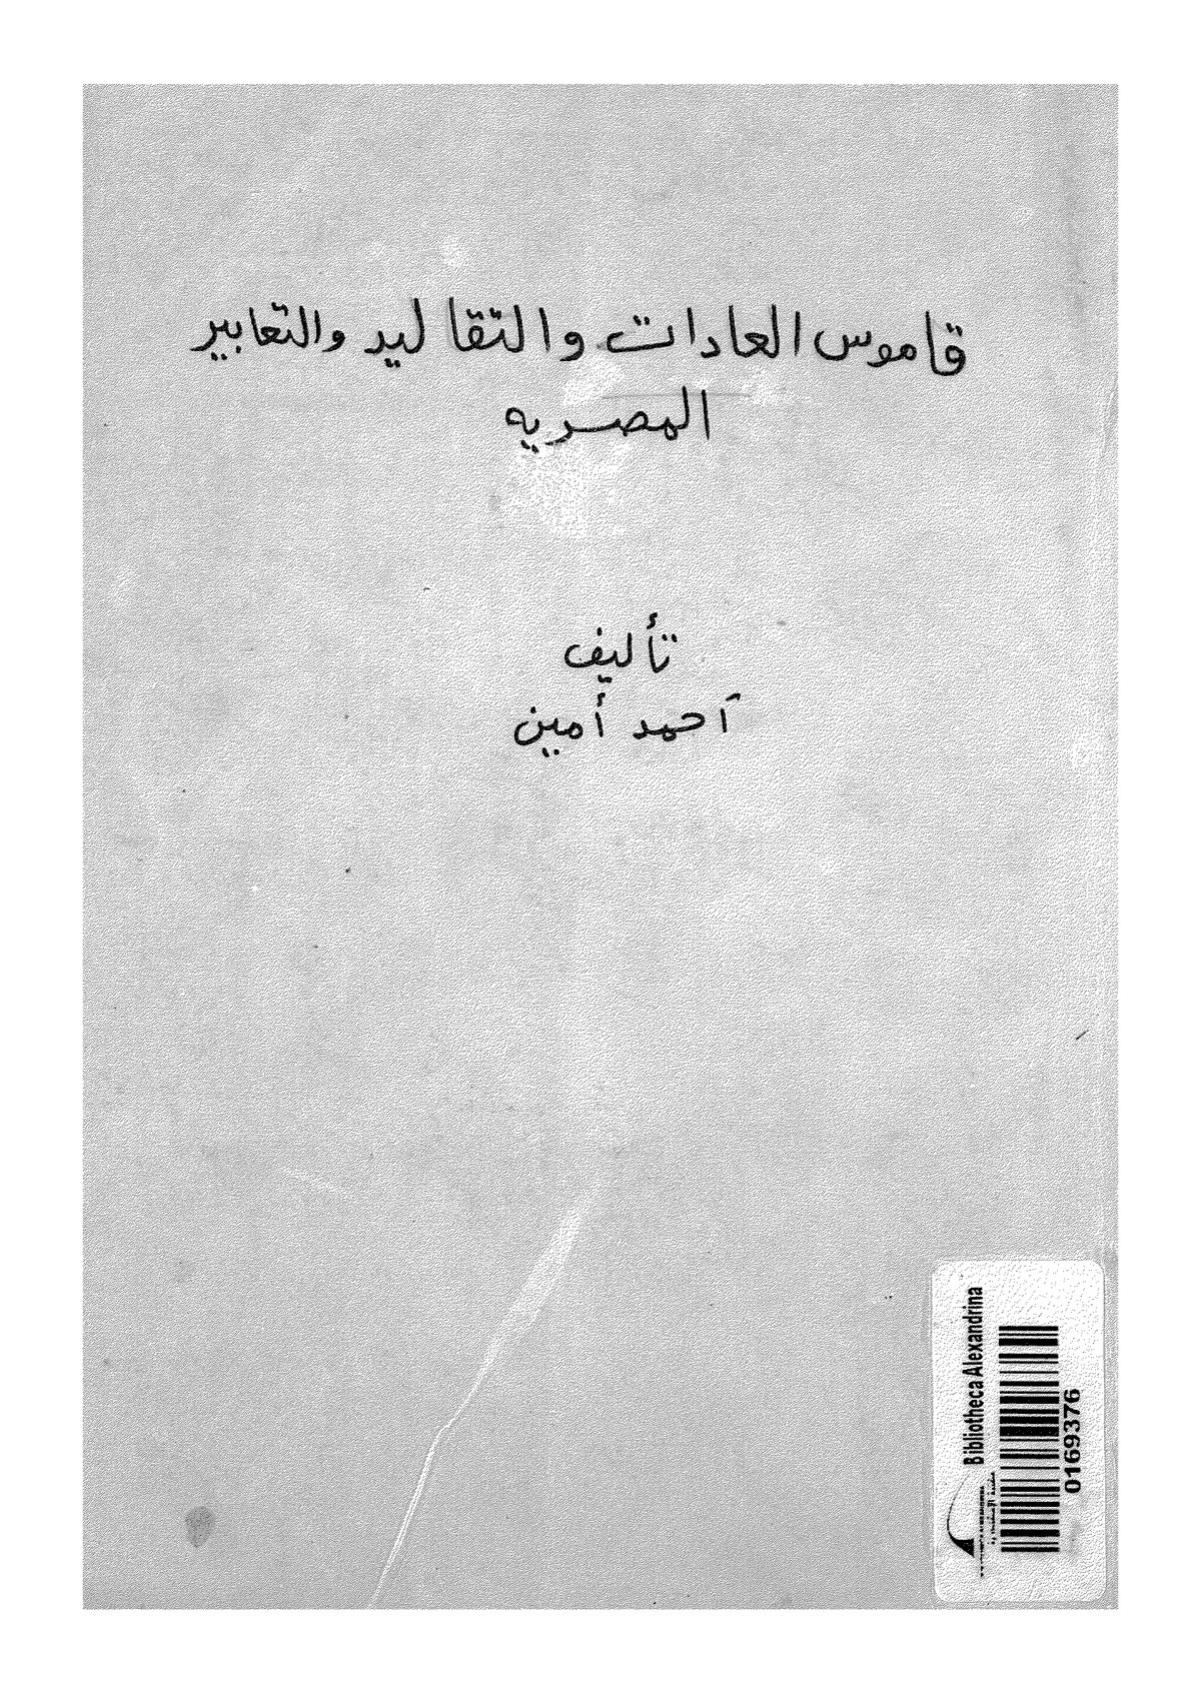 قاموس العادات والتقاليد والتعابير
المصريه
تأليف
آحمد أمين
Bibliotheca Alexandrina
مكتبة الإسكندرية
0169376